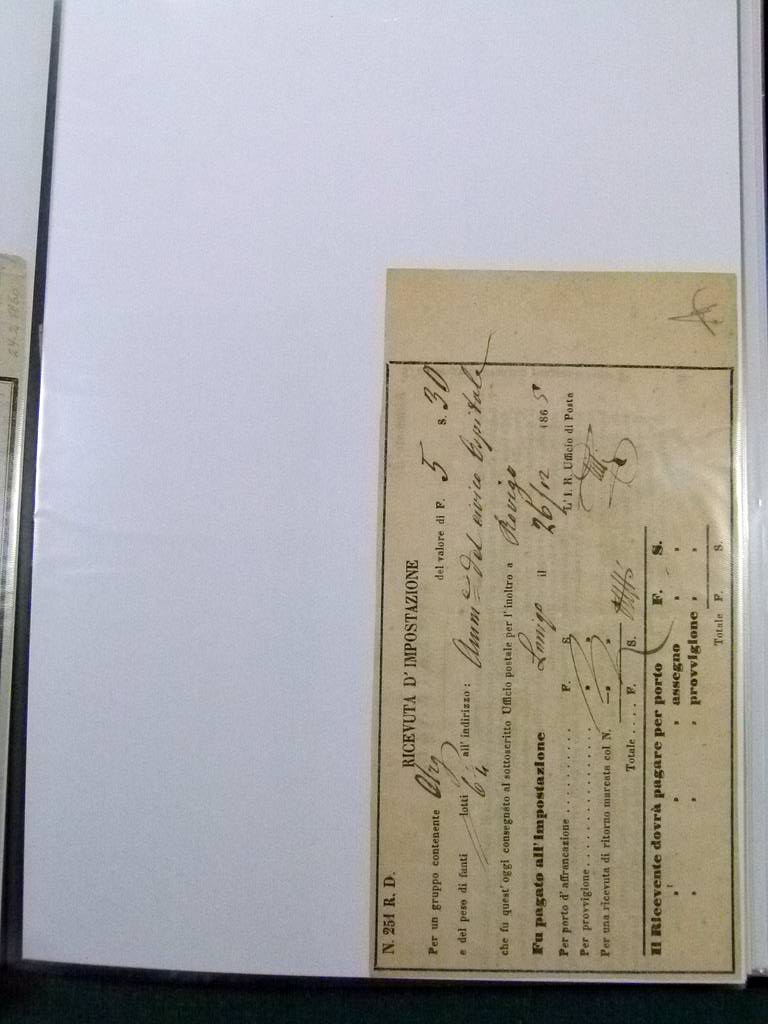 N. 251 R. D.
RICEVUTA D' IMPOSTAZIONE
Per un gruppo contenente Arg del valore di F. 5 S. 30
e del peso di funti lotti 6 all' indirizzo: Amm.e del civico Ospitale
che fu quest' oggi consegnato al sottoscritto Ufficio postale per l' inoltro a Rovigo
Fu pagato all' impostazione Lonigo il 26/12 1865
Per porto d' affrancazione . . . . . . . . . . F. S. L' I. R. Ufficio di Posta
Per provvigione . . . . . . . . . . . . . . . " "
Per una ricevuta di ritorno marcata col N. " "
Totale . . . . F. S.
Il Ricevente dovrà pagare per porto F. S.
" " " assegno " "
" " " provvigione " "
Totale F. S.
24.2.1860